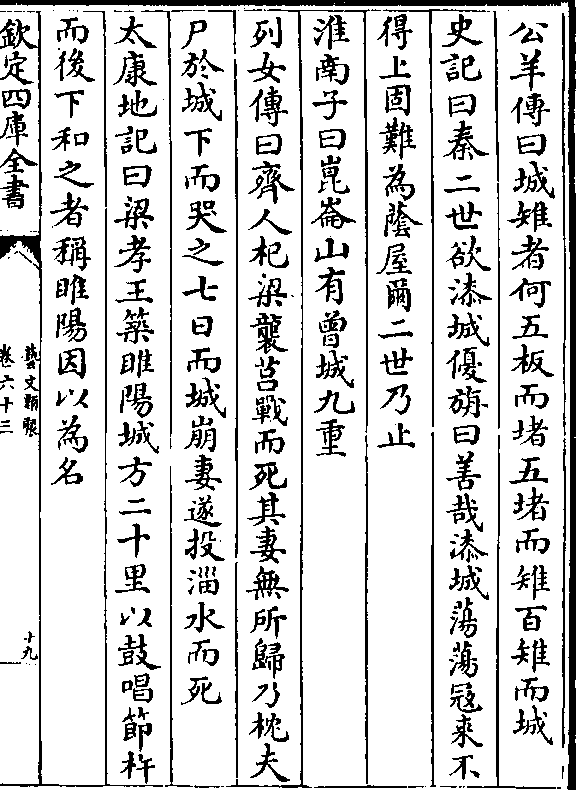 公羊傳曰城雉者何五板而堵五堵而雉百雉而城
史記曰秦二世欲漆城優旃曰善哉漆城蕩蕩冦來不
得上固難為蔭屋爾二世乃止
淮南子曰崑崙山有曾城九重
列女傳曰齊人杞梁襲莒戰而死其妻無所歸乃枕夫
尸於城下而哭之七日而城崩妻遂投淄水而死
太康地記曰梁孝王築睢陽城方二十里以鼓唱節杵
而後下和之者稱睢陽因以為名
欽定四庫全書
藝文類聚
卷六十三
十九